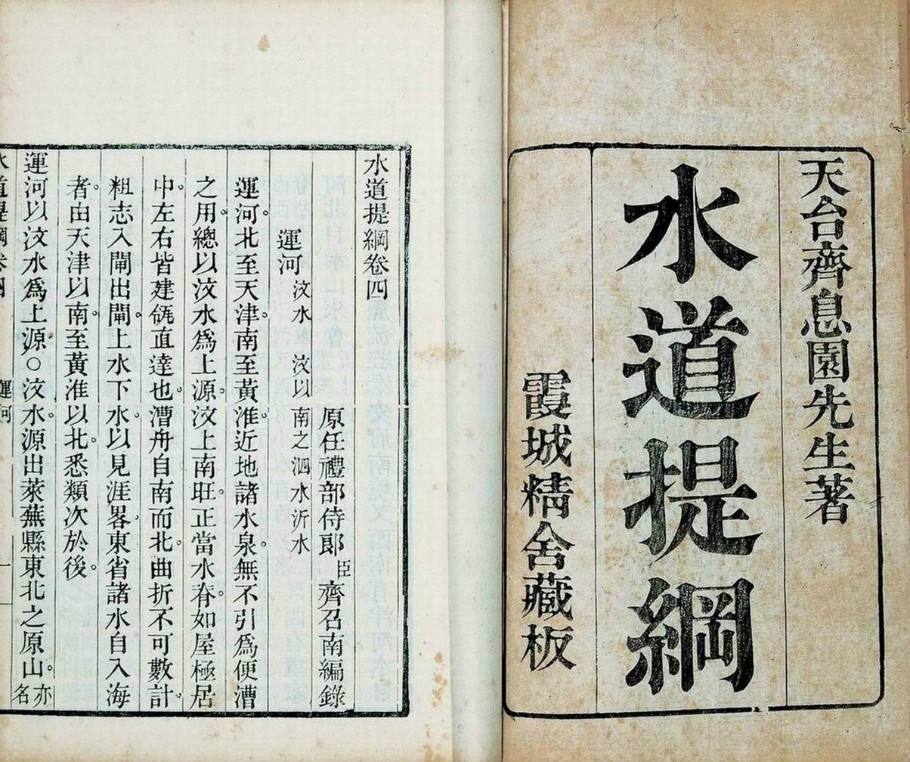 天台齊息園先生著
水道提綱
霞城精舍藏板
水道提綱卷四
原任禮部侍郎臣齊召南編錄
運河 汶水 汶以南之泗水沂水
運河北至天津南至黃淮近地諸水泉無不引爲便漕
之用總以汶水爲上源汶上南旺正當水脊如屋極居
中左右皆建瓴直達也漕舟自南而北曲折不可數計
粗志入閘出閘上水下水以見涯畧東省諸水自入海
者由天津以南至黃淮以北悉類次於後
運河以汶水爲上源○汶水源出萊蕪縣東北之原山亦名
水道提綱卷四 運河 一